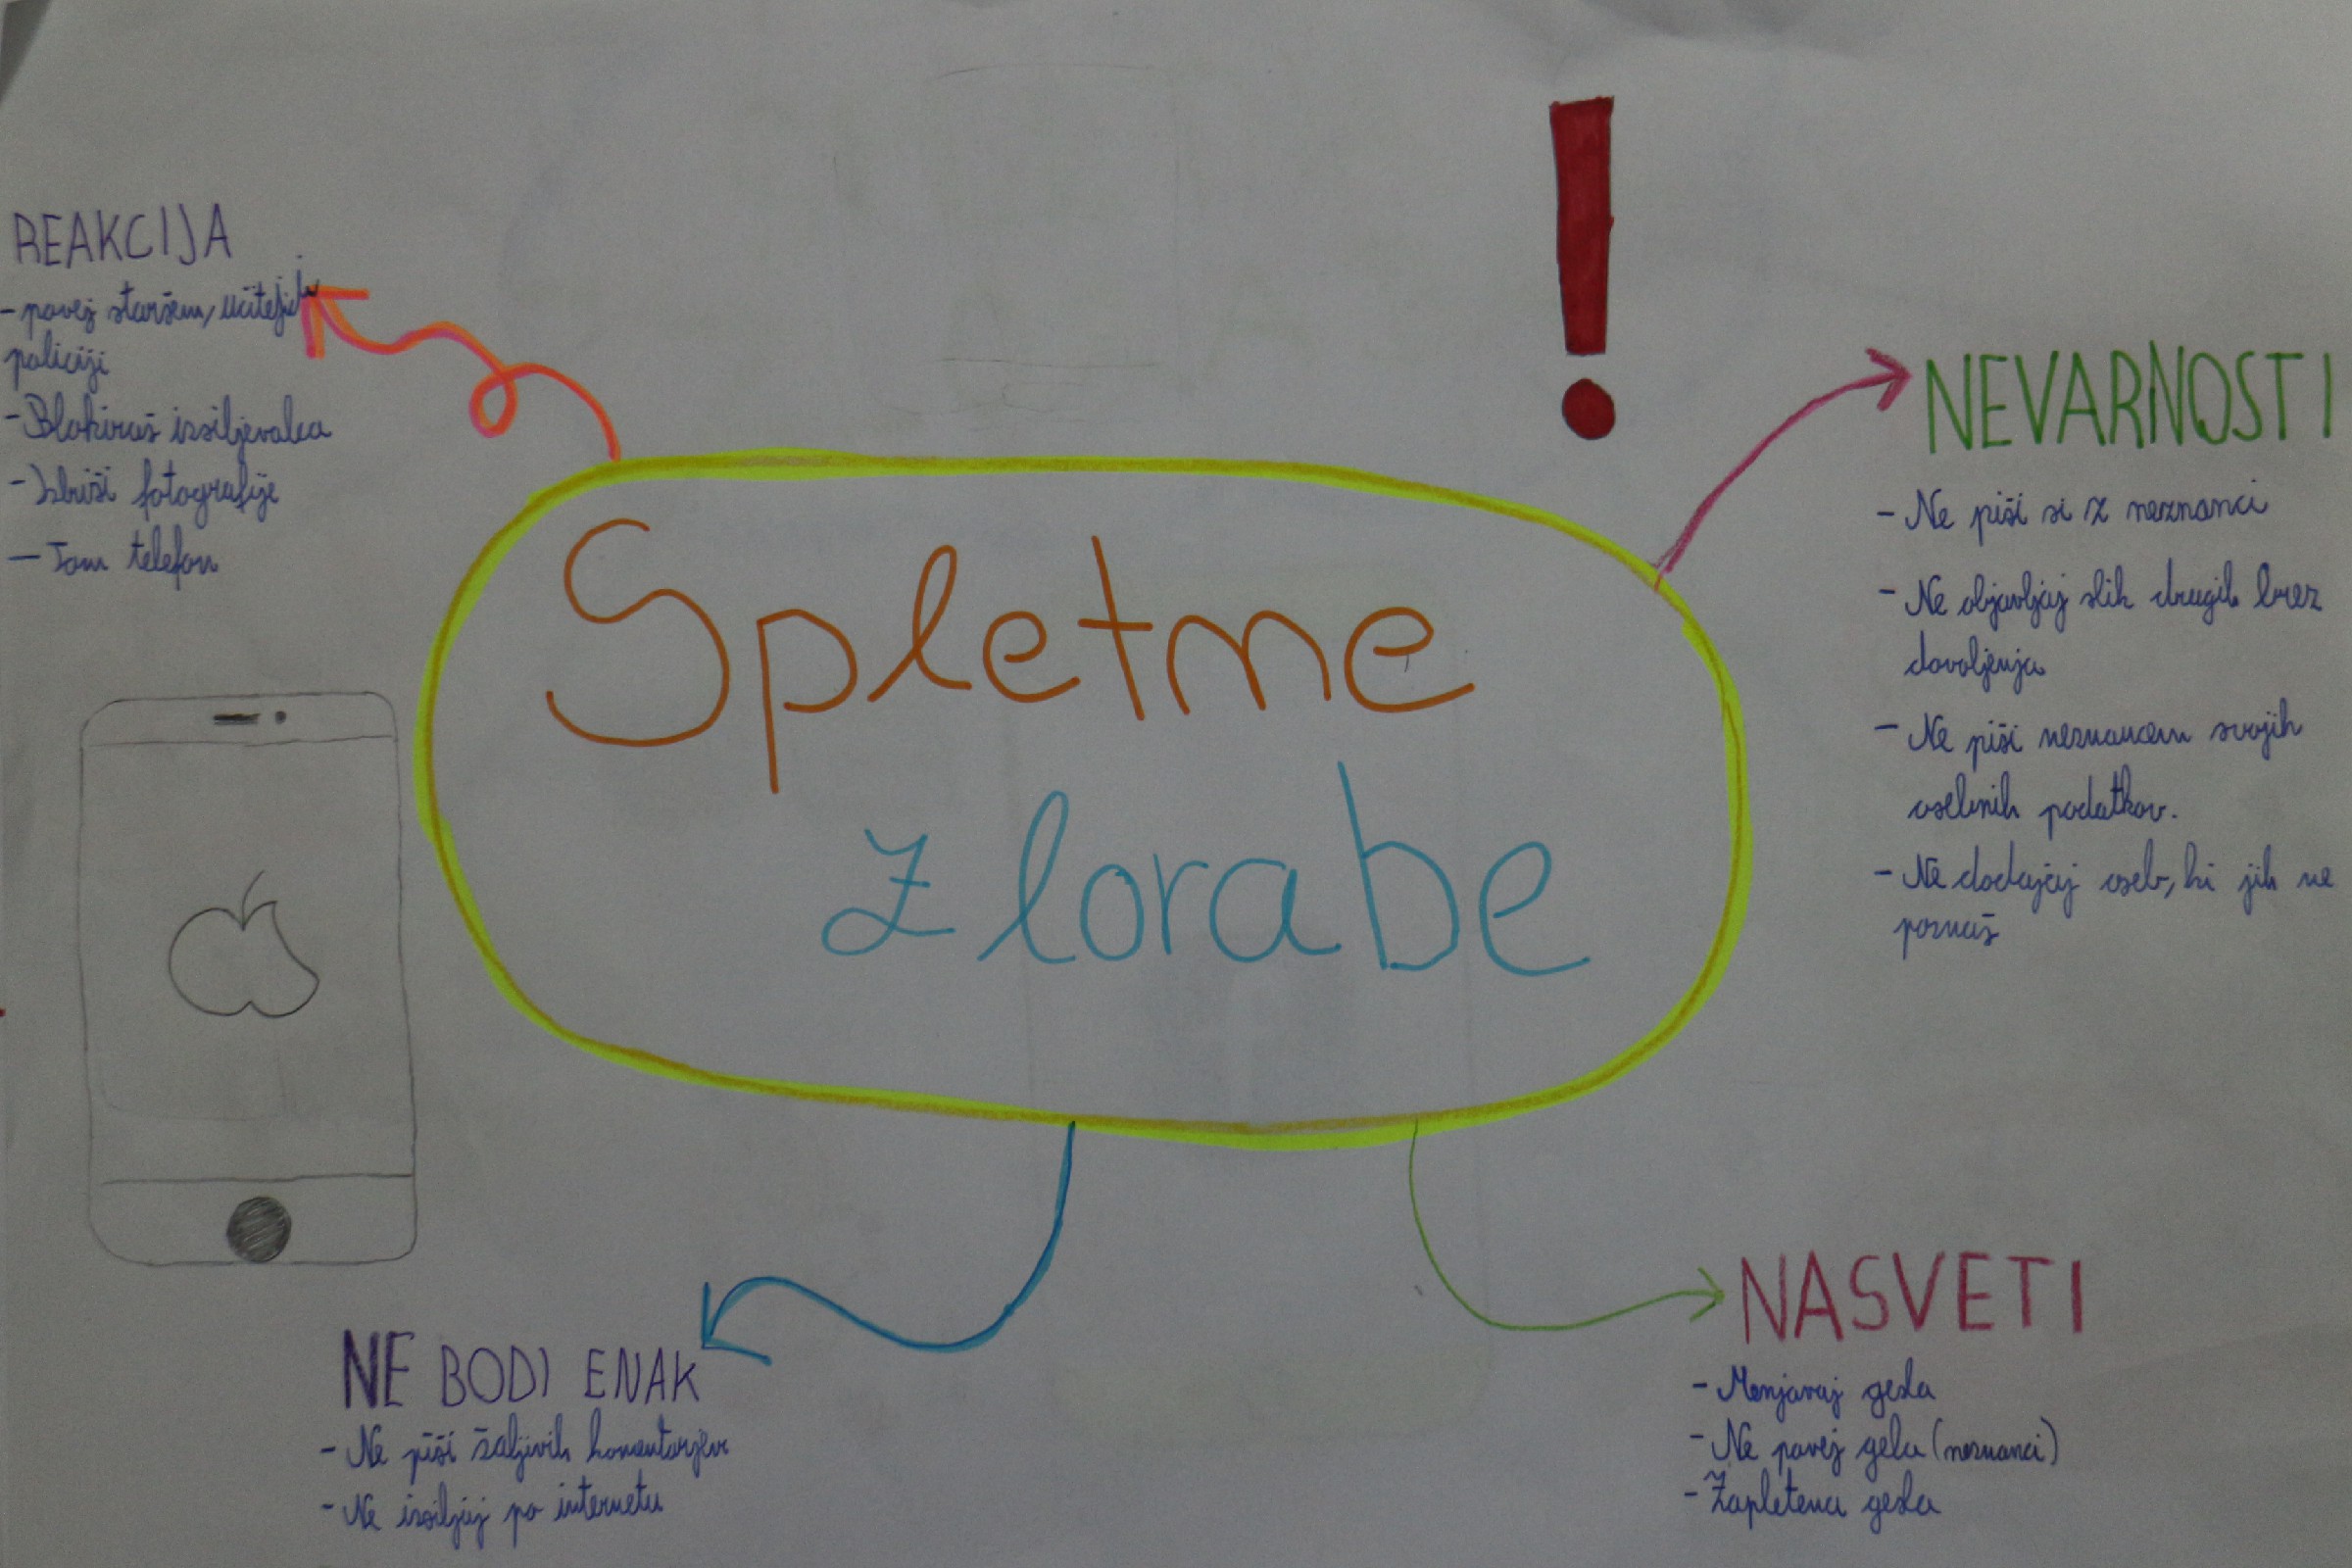 REAKCIJA
- povej staršem, učitelju
policiji
- Blokiraš izsiljevalca
- Izbriši fotografije
- Tom telefon
Spletne
zlorabe
!
NEVARNOSTI
- Ne piši si z neznanci
- Ne objavljaj slik drugih brez
dovoljenja
- Ne piši neznancem svojih
osebnih podatkov.
- Ne dodajaj oseb, ki jih ne
poznaš
NE BODI ENAK
- Ne piši žaljivih komentarjev
- Ne izsiljuj po internetu
NASVETI
- Menjavaj gesla
- Ne povej gela (neznanci)
- Zapletena gesla